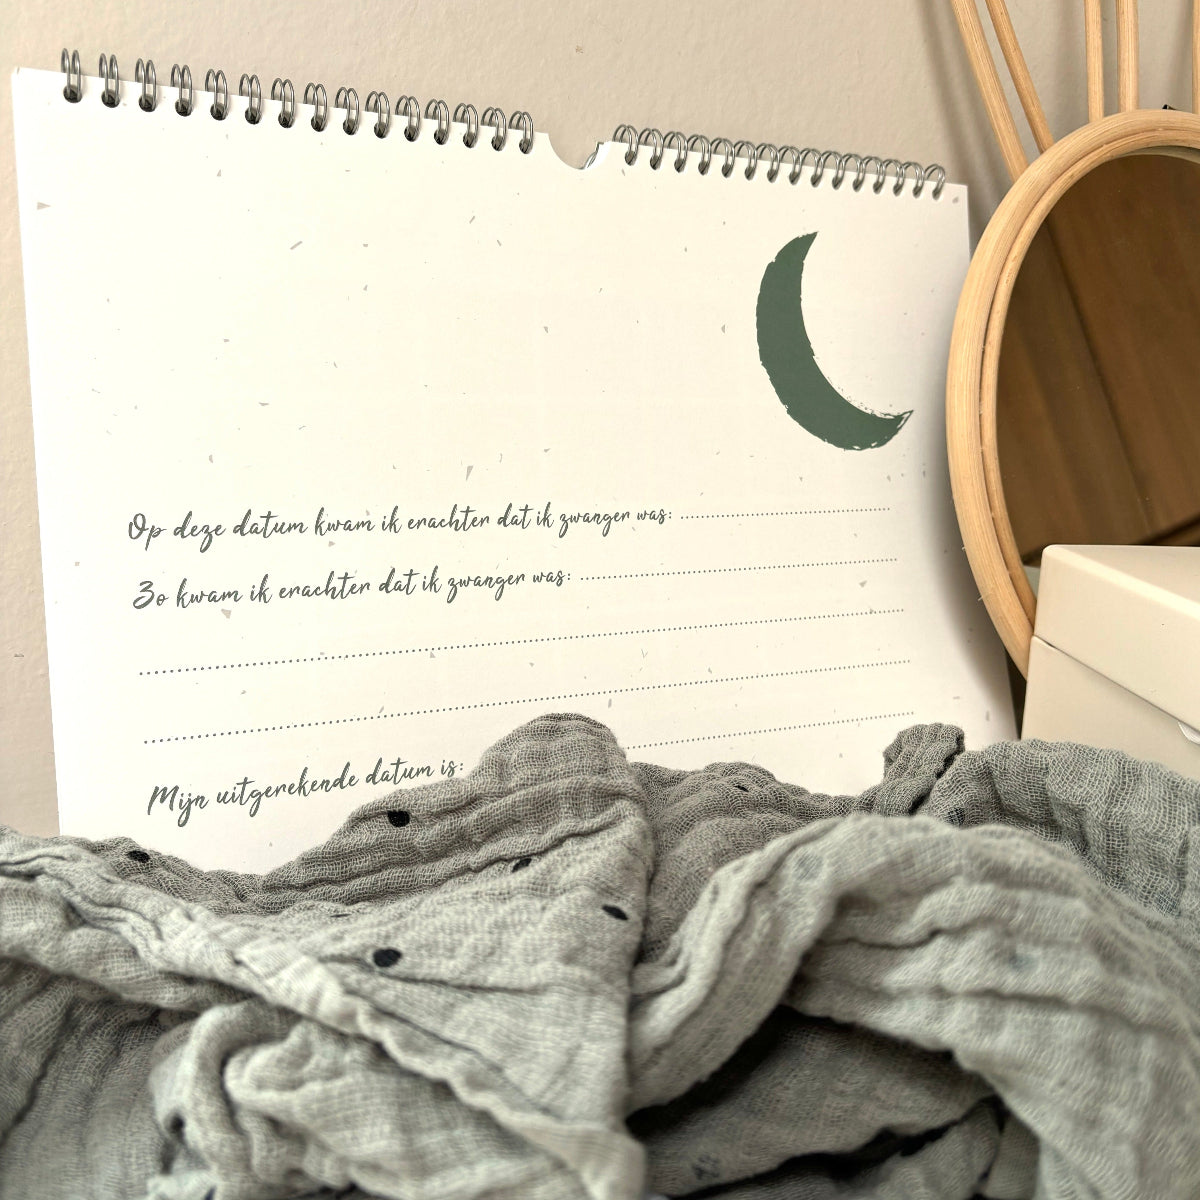 Op deze datum kwam ik erachter dat ik zwanger was:
Zo kwam ik erachter dat ik zwanger was:
Mijn uitgerekende datum is: